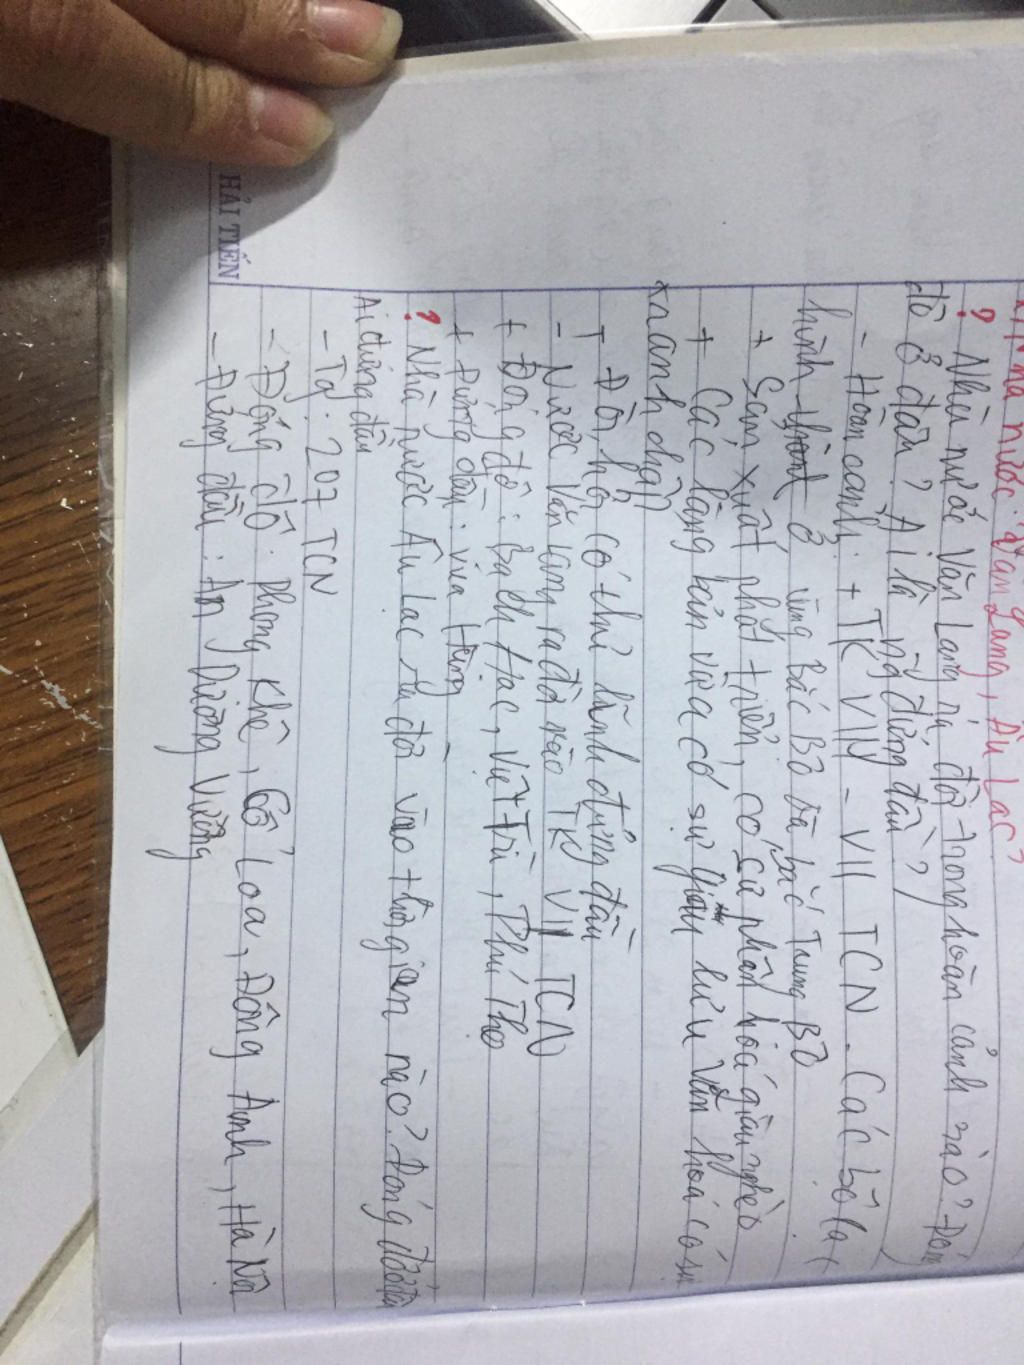 Nhà nước: Văn Lang, Âu Lạc?
? Nhà nước Văn Lang ra đời trong hoàn cảnh nào? Đóng
đô ở đâu? Ai là ng đứng đầu?)
- Hoàn cảnh: + TK VIII - VII TCN - Các bộ lạc
hình thành ở vùng Bắc Bộ và bắc Trung Bộ
+ Sản xuất phát triển, có sự phân hoá giàu nghèo
+ Các làng bản vừa có sự giao lưu văn hoá có sự
tranh chấp
→ Đòi hỏi có thủ lĩnh đứng đầu
- Nước Văn Lang ra đời vào TK VII TCN
+ Đóng đô: Bạch Hạc, Việt Trì, Phú Thọ
+ Đứng đầu: vua Hùng
? Nhà nước Âu Lạc ra đời vào thời gian nào? Đóng đô ở đâu
Ai đứng đầu
- Tg: 207 TCN
- Đóng đô: Phong Khê, Cổ Loa, Đông Anh, Hà Nội
- Đứng đầu: An Dương Vương
HẢI TIẾN